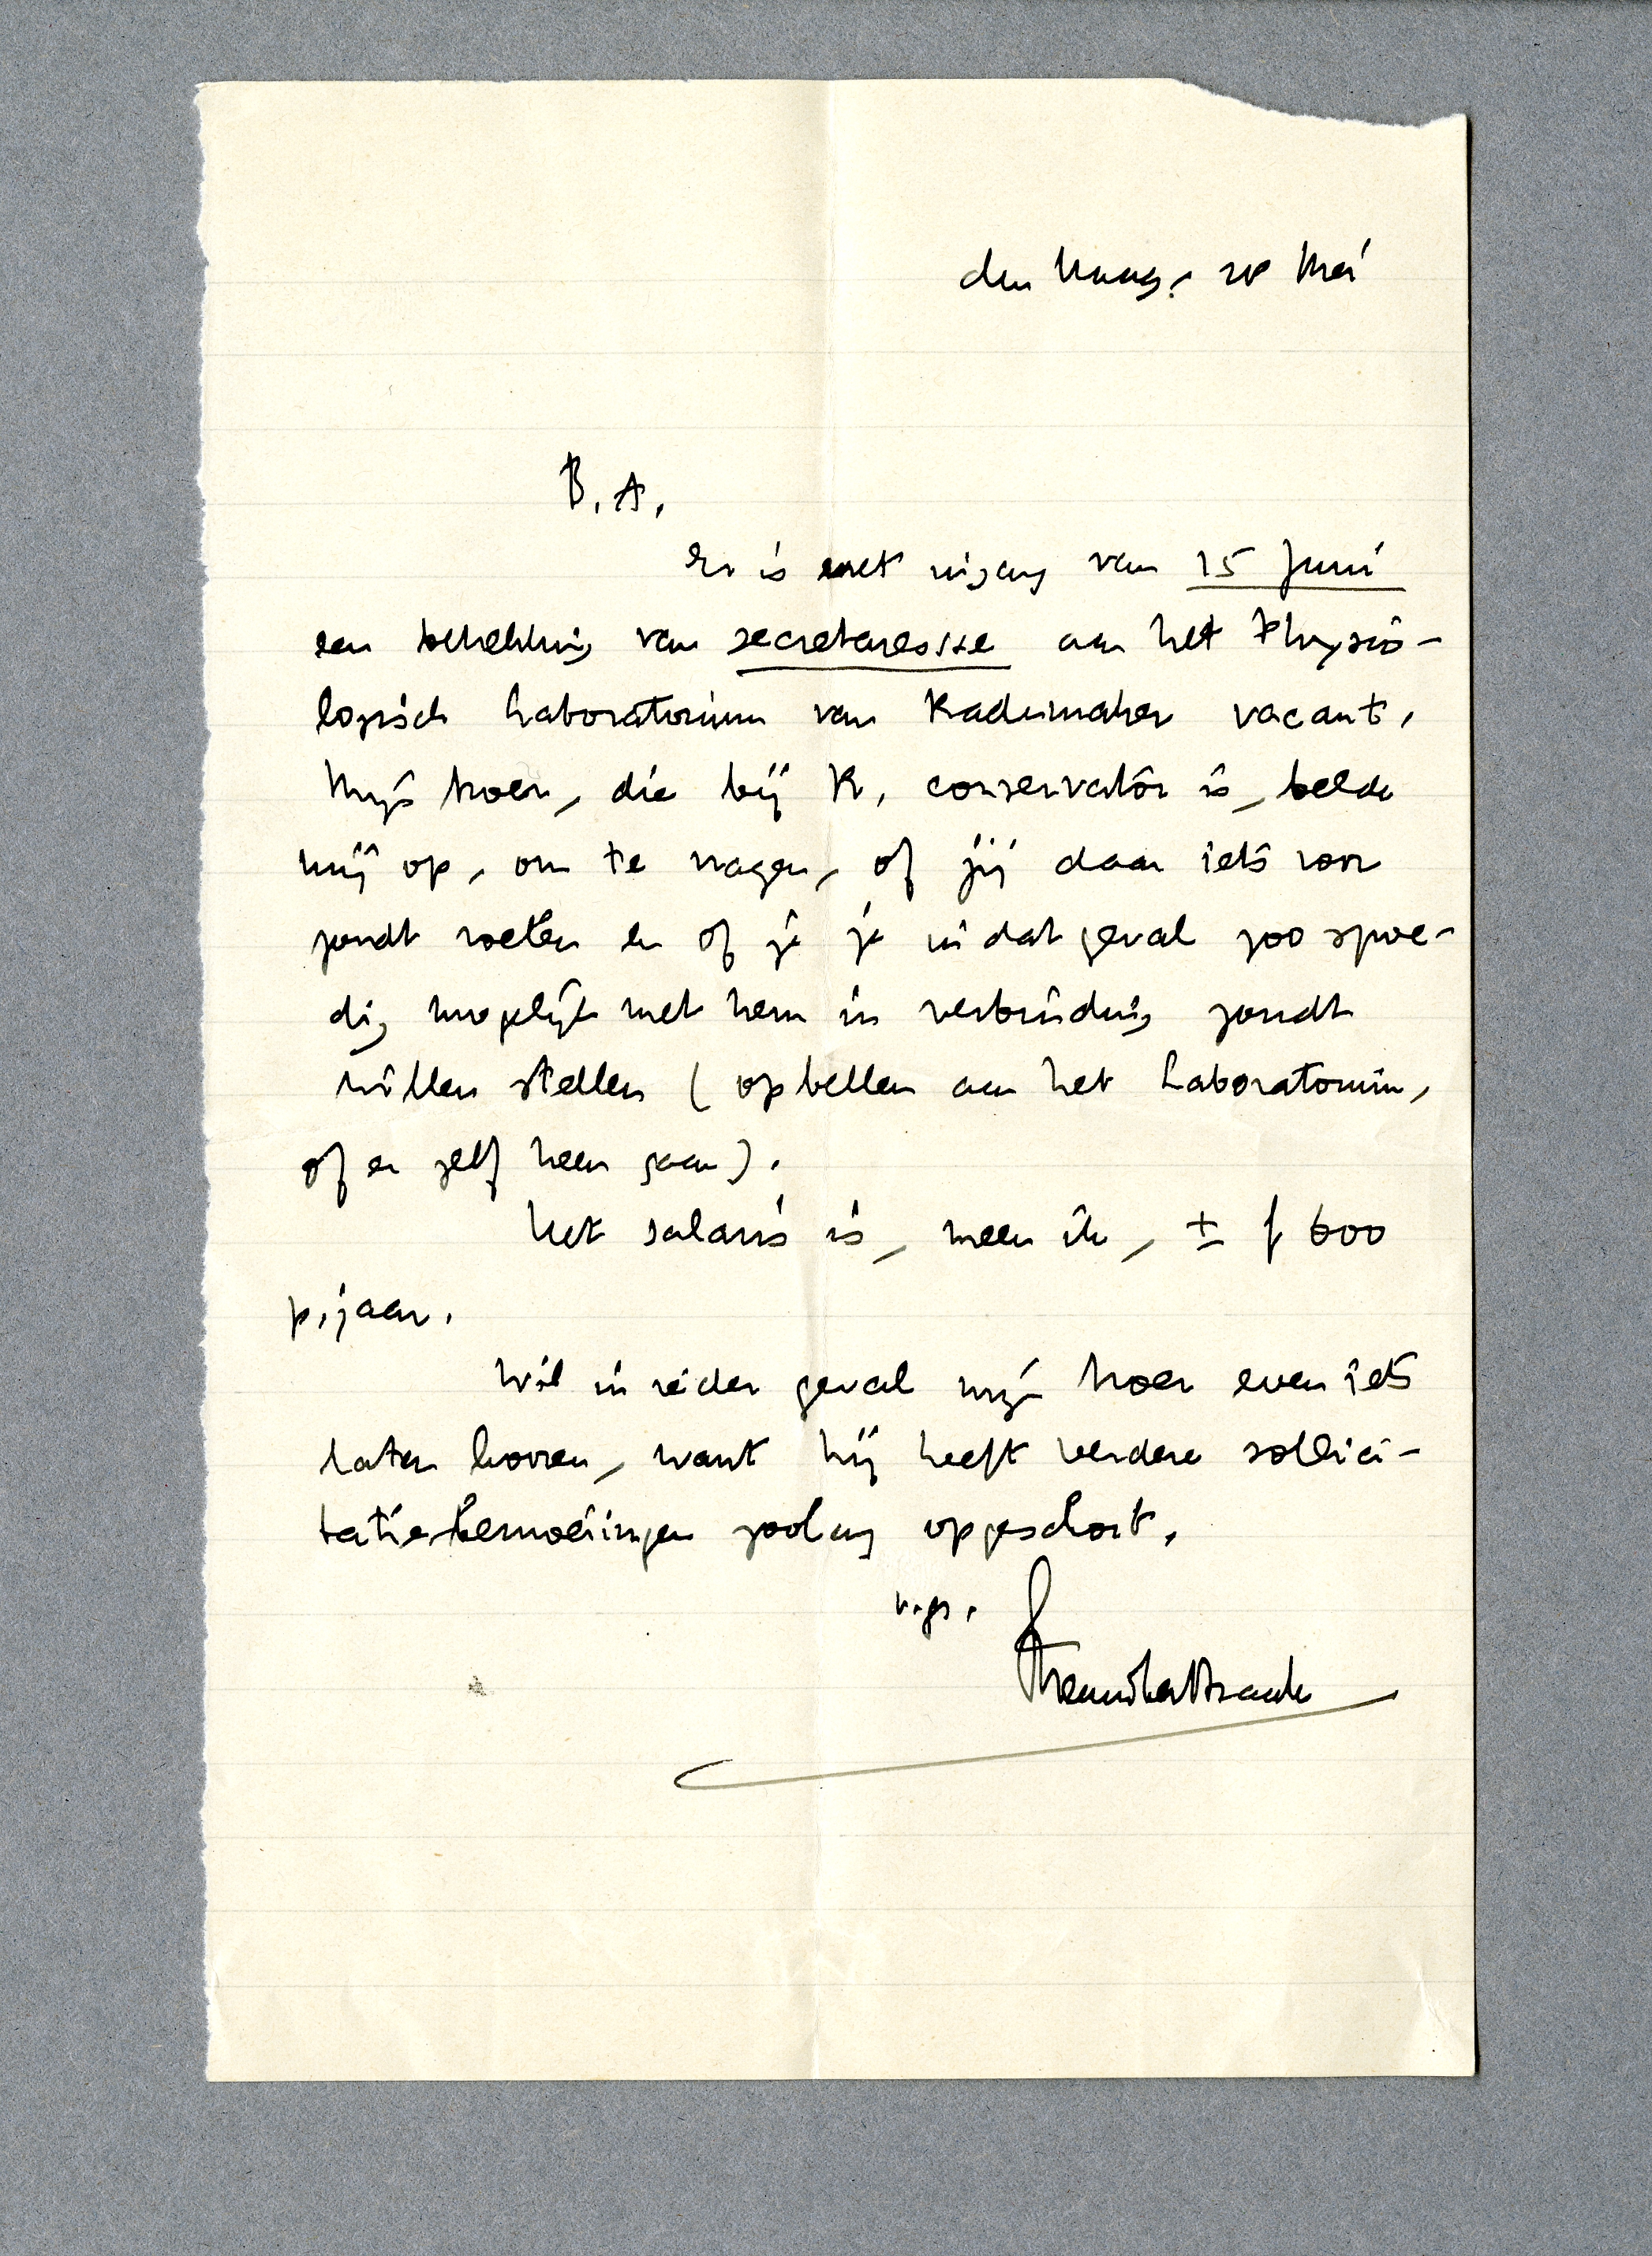 den Haag, 20 Mei
B. A.
Er is met ingang van 15 Juni
een betrekking van secretaresse aan het Physio-
logisch Laboratorium van Rademaker vacant.
Mijn broer, die bij R. conservator is, belde
mij op, om te vragen, of jij daar iets voor
zoudt voelen en of je je in dat geval zoo spoe-
dig mogelijk met hem in verbinding zoudt
willen stellen (opbellen aan het Laboratorium,
of er zelf heen gaan).
Het salaris is, meen ik, ± f 600
p. jaar.
Wil in ieder geval mijn broer even iets
laten hooren, want hij heeft verdere sollici-
tatie-bemoeiingen zoolang opgeschort.
v. gr.
Menno ter Braak